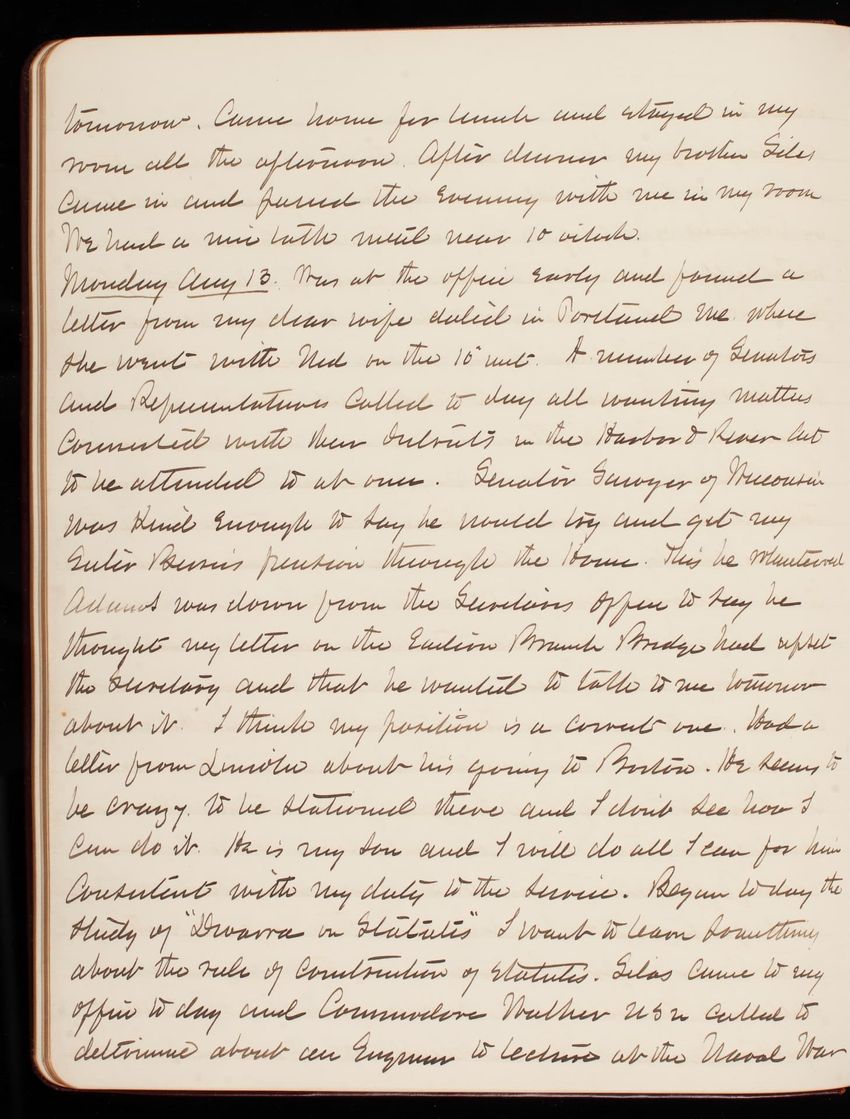 tomorrow. Came home for lunch and stayed in my
room all the afternoon. After dinner my brother Silas
came in and passed the Evening with me in my room
We had a nice talk until near 10 oclock.
Monday Aug 13. Was at the office early and found a
letter from my dear wife dated in Portland Me. where
she went with Ned on the 10" inst. A number of Senators
and Representatives called to day all wanting matters
connected with their districts in the Harbor & River Act
to be attended to at once. Senator Sawyer of Wisconsin
was kind enough to say he would try and get my
Sister pension through the House. This he volunteered
Adams was down from the Secretarys office to say he
thought my letter on the Eastern Branch Bridge had upset
the Secretary and that he wanted to talk to me tomorrow
about it. I think my position is a correct one. Had a
letter from Lincoln about his going to Boston. He seems to
be crazy to be stationed there and I dont see how I
can do it. He is my son and I will do all I can for him
Consistent with my duty to the service. Began to day the
study of "Dwarris on Statutes" I want to learn something
about the rule of construction of statutes. Silas came to my
office to day and Commodore Walker USN called to
determine about an Engineer to lecture at the Naval War